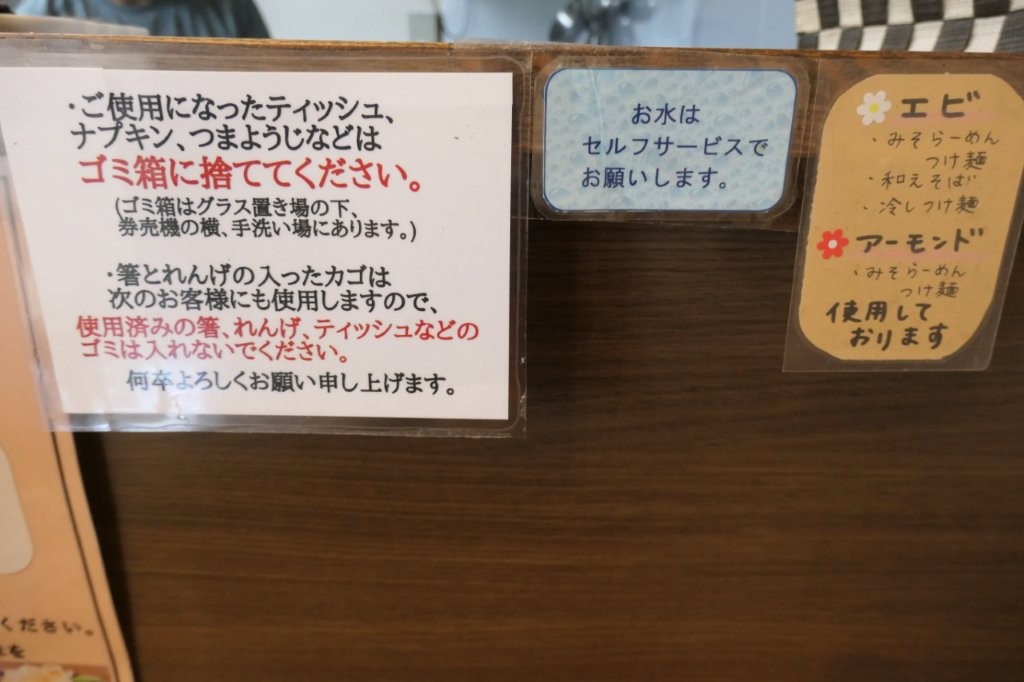 ・ご使用になったティッシュ、
ナプキン、つまようじなどは
ゴミ箱に捨ててください。
(ゴミ箱はグラス置き場の下、
券売機の横、手洗い場にあります。)
・箸とれんげの入ったカゴは
次のお客様にも使用しますので、
使用済みの箸、れんげ、ティッシュなどの
ゴミは入れないでください。
何卒よろしくお願い申し上げます。
お水は
セルフサービスで
お願いします。
エビ
・みそらーめん
つけ麺
・和えそば
・冷しつけ麺
アーモンド
・みそらーめん
つけ麺
使用して
おります
ください。
を